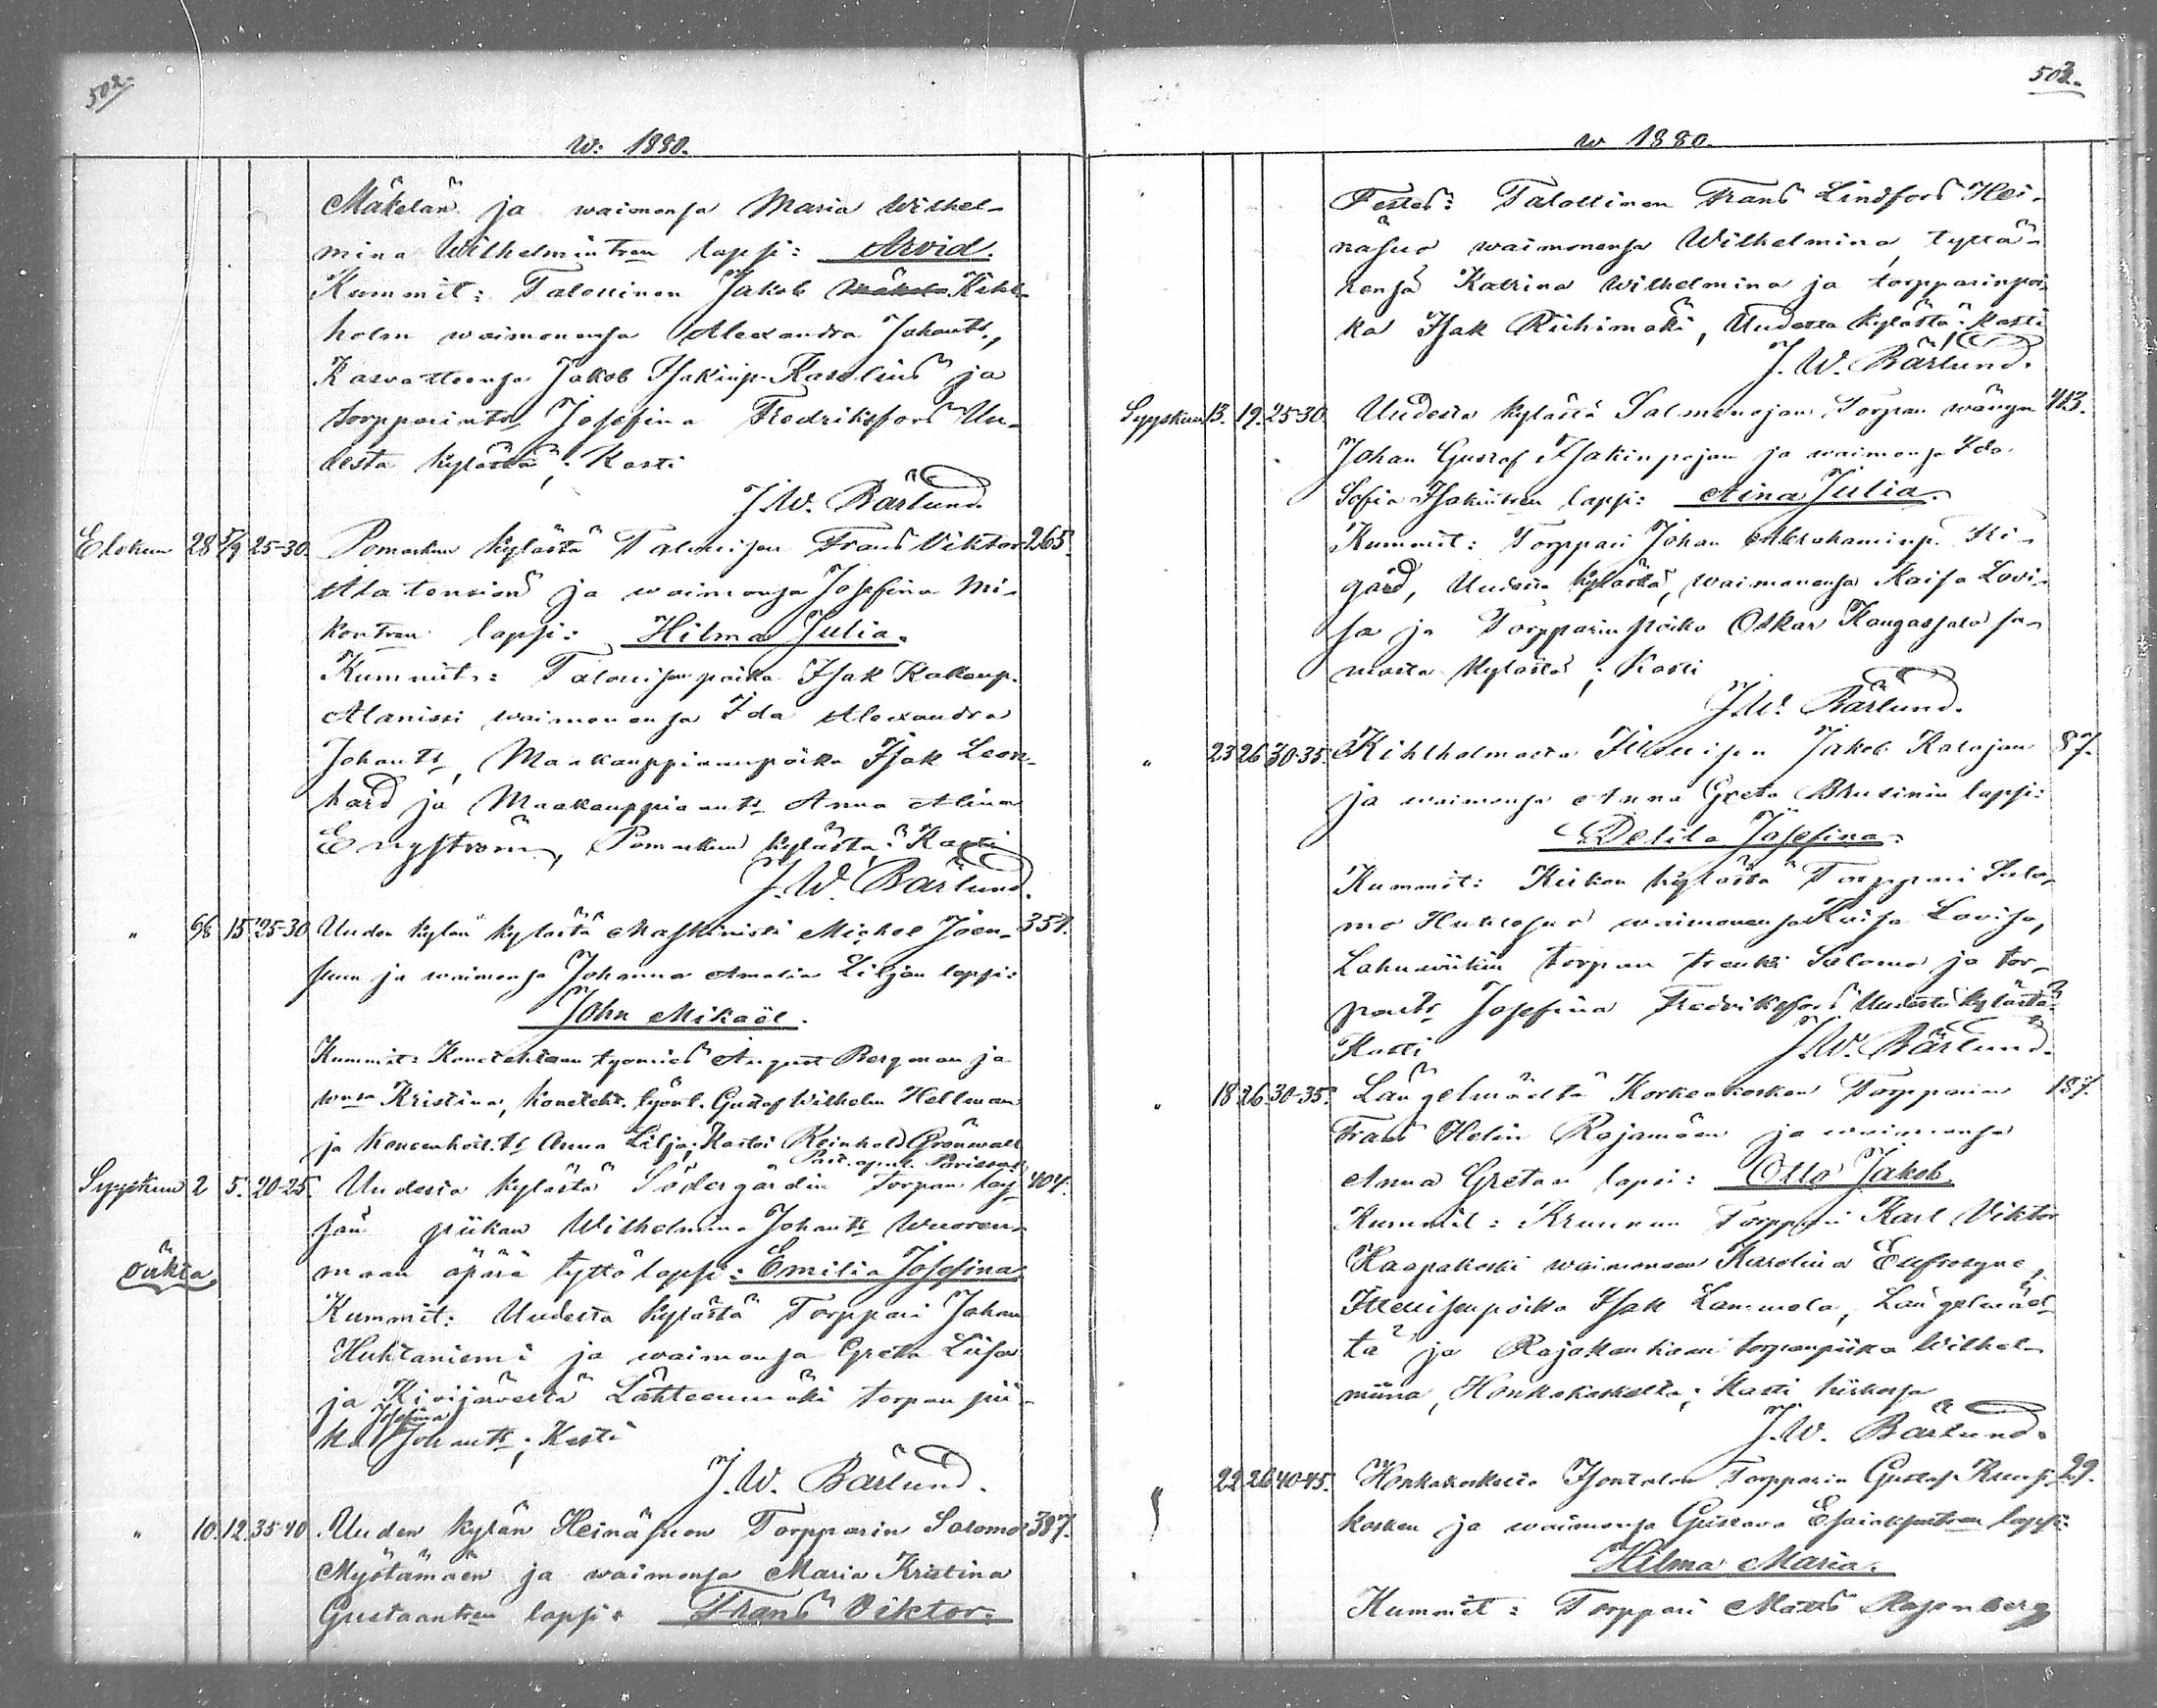 502.
w: 1880.
Mäkelän ja waimonsa Maria Wilhel-
mina Wilhelmintren lapsi: Arvid.
Kummit: Talollinen Jakob Kihl-
holm waimonensa Alexandra Johants.,
Kasvattoonsa Jakob Isakinp. Kaselius ja
torpparints Josefina Fredriksfors Uu-
desta kylästä; Kasti
J. W. Bärlund.
Elokuu 28 5/9 25-30. Pomarkun kylästä Talollisen Frans Viktor 265.
Alatensiön ja waimonsa Josefina Mi-
kontren lapsi: Hilma Julia.
Kummit: Talollisenpoika Isak Kakonp.
Alanissi waimonensa Ida Alexandra
Johants, Maakauppiaanpoika Isak Leon-
hard ja Maakauppiaants Anna Alina
Engström, Pomarkun kylästä; Kasti
J. W. Bärlund.
" 15. 25-30 Uuden kylän kylästä Maskinisti Mickel Joen- 351.
suun ja waimonsa Johanna Amalia Liljan lapsi:
John Mikaël.
Kummit: Konetehtaan työmies August Bergman ja
wnsa Kristina, koneteht. työnt. Gustaf Wilhelm Hellman
ja koneenhoit. ts Anna Lilja; Kastoi Reinhold Grönwall
Past. apul. Porissa.
Syyskuu 2 5. 20-25. Uudesta kylästä Södergårdin torpan loy- 404.
sän piikan Wilhelmina Johants Wuoren-
maan äpärä tyttölapsi: Emilia Josefina.
oikia
Kummit: Uudesta kylästä Torppari Johan
Huhtaniemi ja waimonsa Greta Liisa
ja Kivijärveltä Lähteenmäki torpan pii-
Josefina
ka Johants; Kasti
J. W. Bärlund.
" 10. 12. 35-40. Uuden kylän Heinäsuon Torpparin Salomo 387.
Myötämäen ja waimonsa Maria Kristina
Gustaantren lapsi: Frans Viktor.
503.
w 1880.
Testes: Talollinen Frans Lindfors Hei-
näsuo waimonensa Wilhelmina, tyttä-
rensä Katrina Wilhelmina ja torpparinpoi-
ka Isak Riihimäki, Uudesta kylästä; Kasti
J. W. Bärlund.
Syyskuu 13. 19. 25-30. Uudesta kylästä Salmenojan Torpan wängin 413.
Johan Gustaf Isakinpojan ja waimonsa Ida
Sofia Isakintren lapsi: Aina Julia.
Kummit: Torppari Johan Abrahaminp. Ki-
gård, Uudesta kylästä, waimonensa Kaisa Lovi-
sa ja Torpparin poika Oskar Kangassalo sa-
masta kylästä; Kasti
J. W. Bärlund.
" 23 26 30-35. Kihlholmasta Itsellisen Jakob Kalajan 87.
ja waimonsa Anna Greta Brusinin lapsi:
Delila Josefina.
Kummit: Kirkon kylästä Torppari Salo-
mo Huhtasuo waimonensa Kaisa Lovisa,
Lahnawiikin torpan trenki Salomo ja tor-
parits Josefina Fredriksfors Uudesta kylästä.
Kasti J. W. Bärlund.
" 18. 26. 30-35. Längelmäeltä Korkeakosken Torpparin 187.
Frans Helin Rajamäen ja waimonsa
Anna Gretan lapsi: Otto Jakob.
Kummit: Kruunun Torppari Karl Viktor
Haapakoski waimoneen Karolina Eufrosyne,
Itsellisenpoika Isak Lammela, Längelmäel-
tä ja Rajakankaan torpanpiika Wilhel-
miina, Honkakoskelta; Kasti kirkossa
J. W. Bärlund.
" 22 26 40-45. Honkakoskelta Isontalon Torpparin Gustaf Kuusi- 29.
kosken ja waimonsa Gustava Esaiaksentren lapsi:
Hilma Maria.
Kummit: Torppari Matts Rosenberg